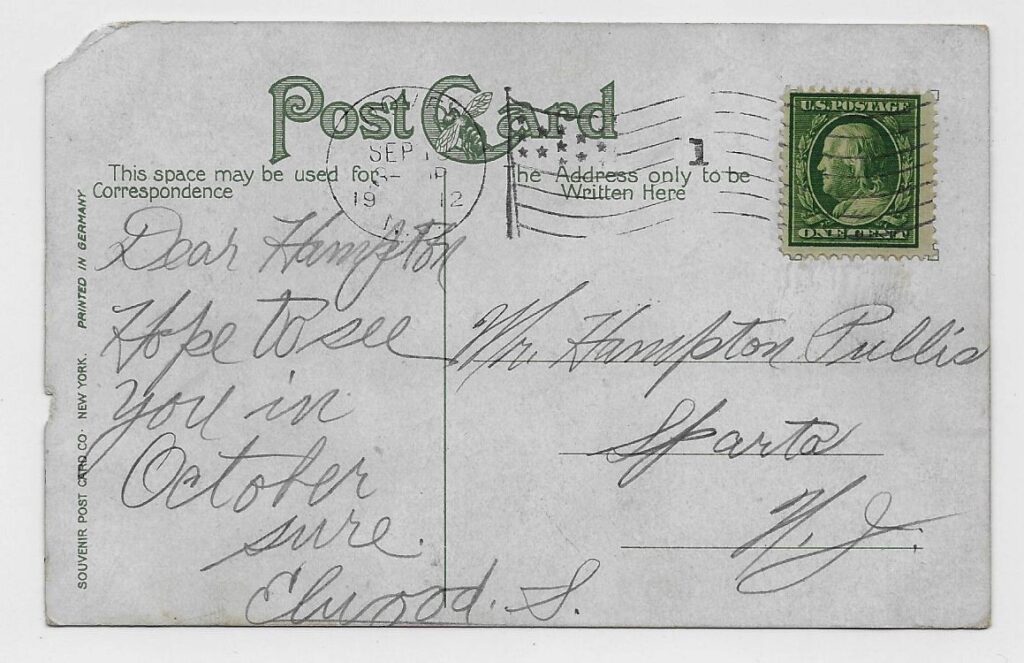 Post Card
This space may be used for
Correspondence
he Address only to be
Written Here
SEP
19 12
1
U.S. POSTAGE
ONE CENT
PRINTED IN GERMANY
SOUVENIR POST CARD CO. NEW YORK.
Dear Hampton
Hope to see
you in
October
sure.
Elwood. S.
Mr. Hampton Pullis
Sparta
N. J.